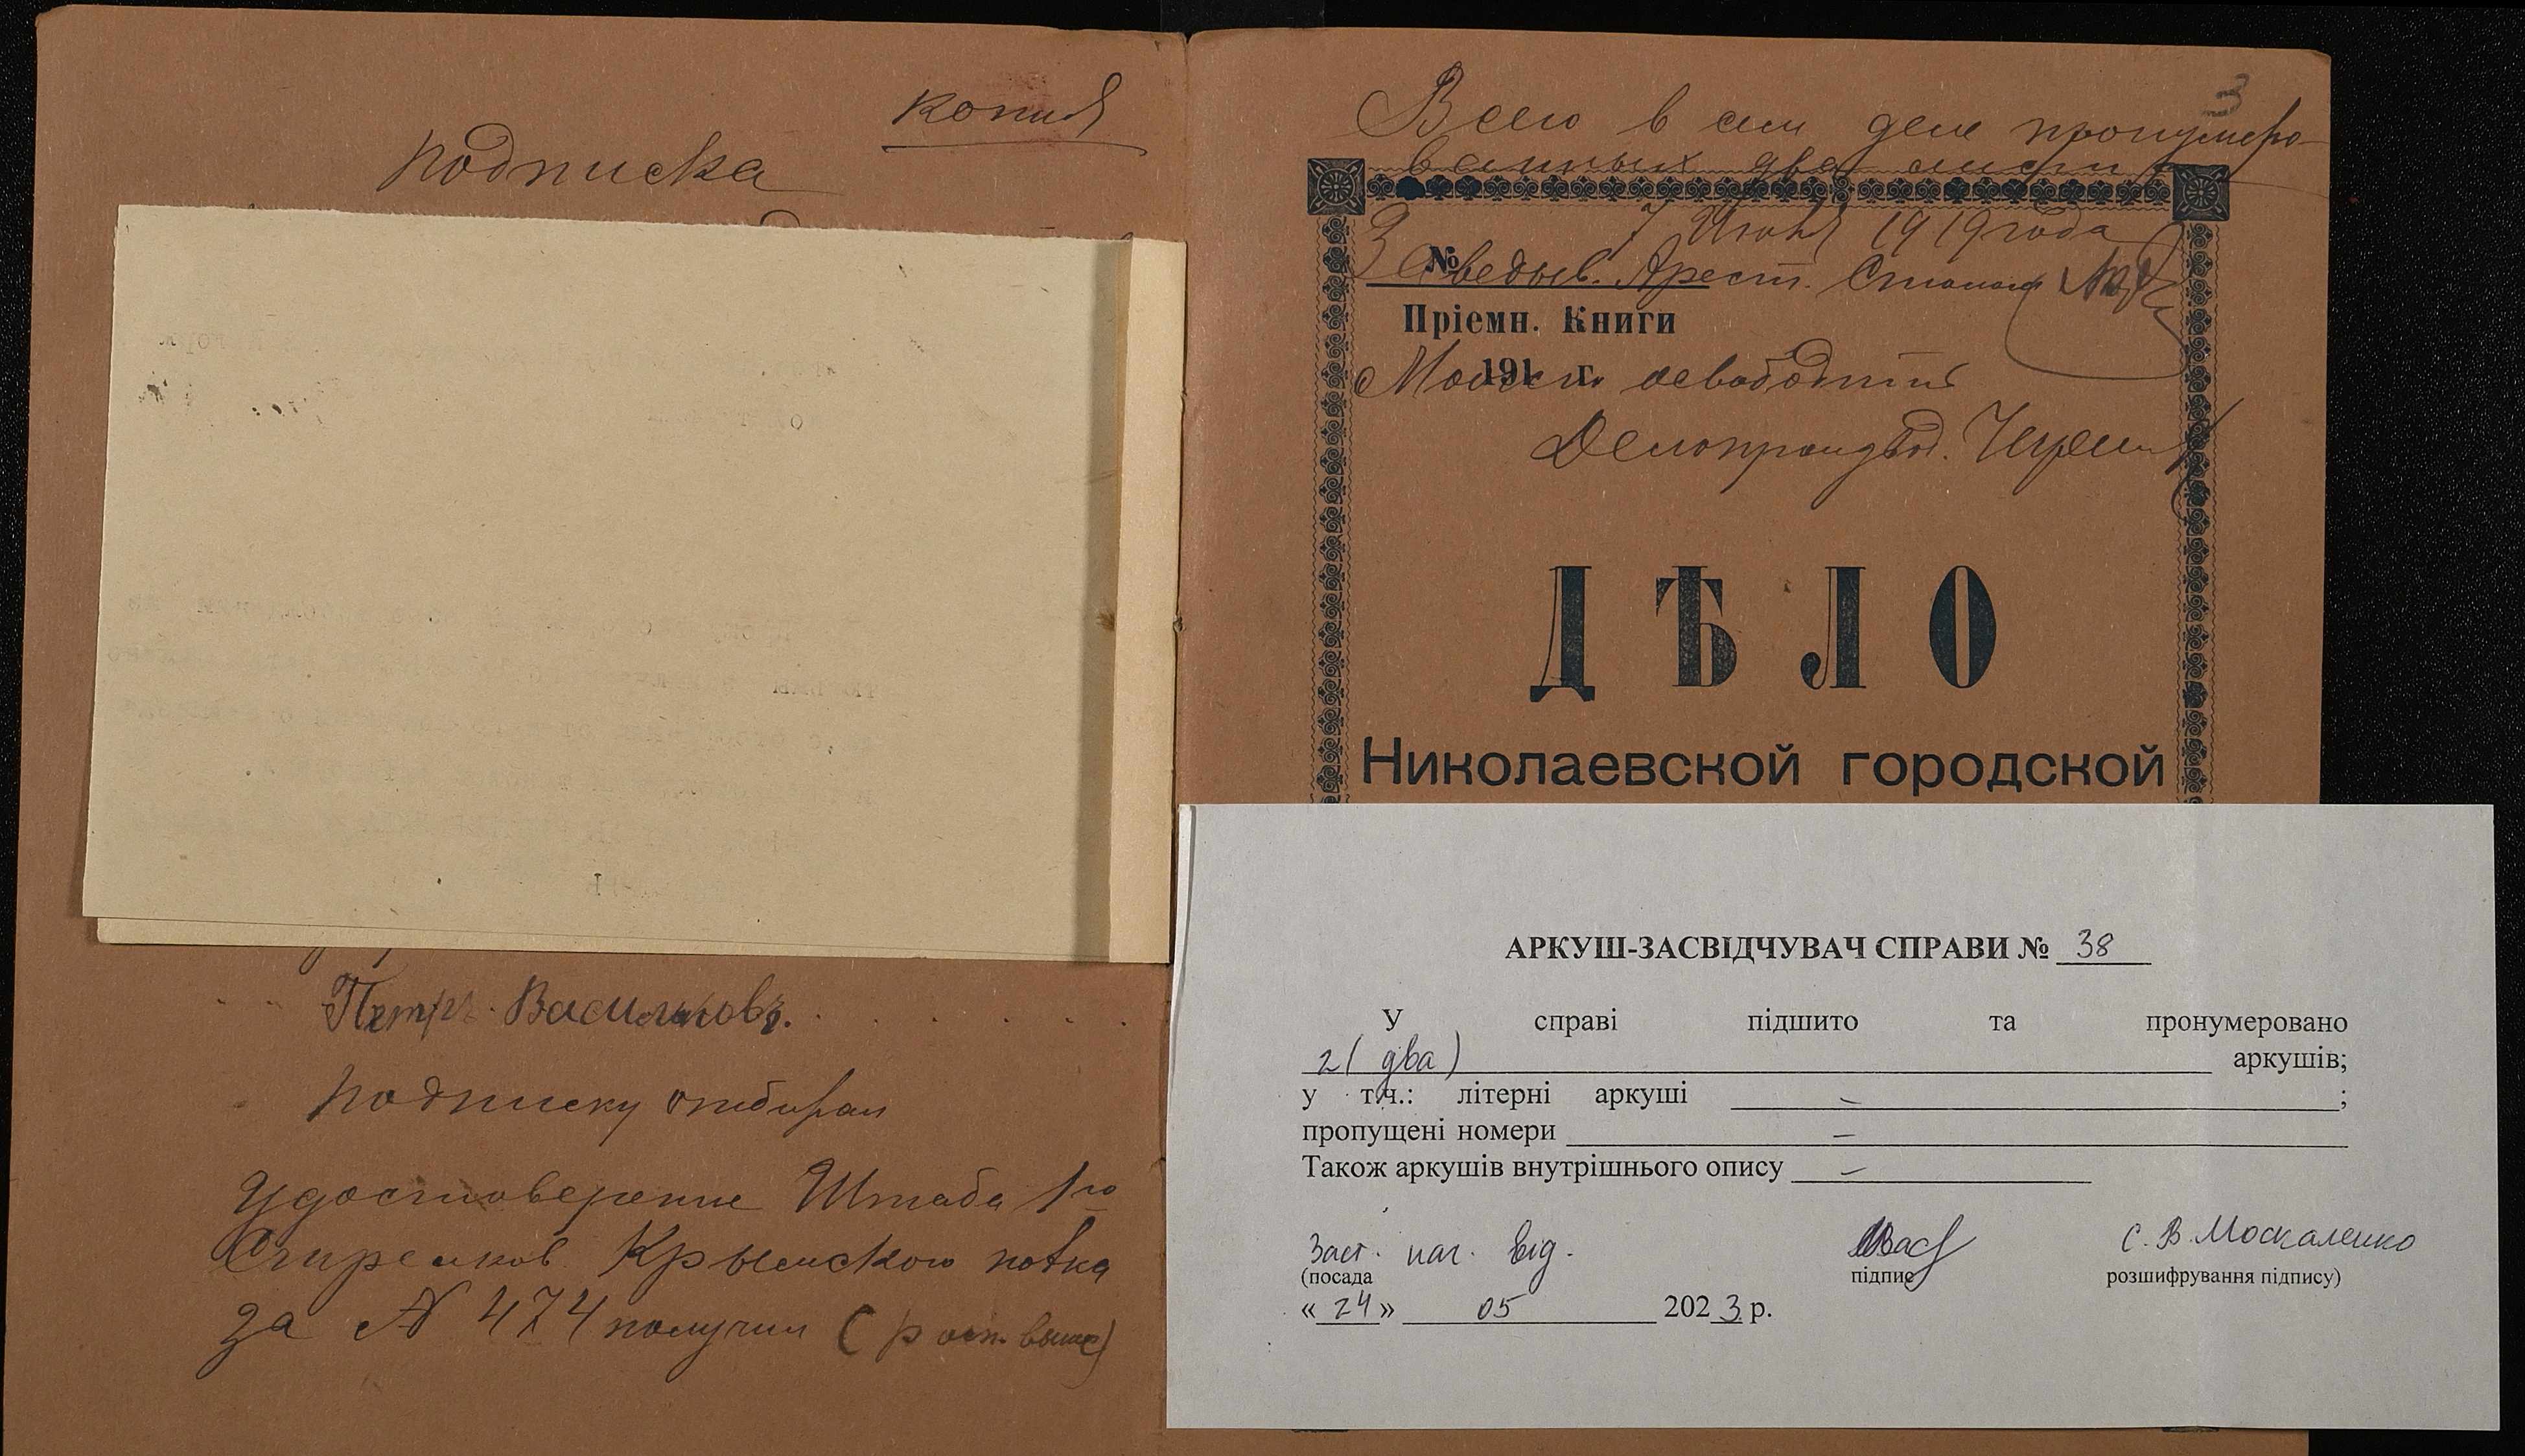 копия
Подписка
Петръ Васильковъ.
Подписку отбирал
Удостоверение Штаба 1го
Крымского полка
за № 474 получил
3
Всего в сем деле пронумеро-
ванных два листа
7 Июня 1919 года
№ Заведыв. Арест. Столом
Пріемн. Книги
191 г.
освободить
Делопроизвод.
ДѢЛО
Николаевской городской
АРКУШ-ЗАСВІДЧУВАЧ СПРАВИ № 38
У справі підшито та пронумеровано
2 (два) аркушів;
у т.ч.: літерні аркуші – ;
пропущені номери –
Також аркушів внутрішнього опису –
Заст. нач. від. С. В. Москаленко
(посада підпис розшифрування підпису)
« 24 » 05 2023 р.